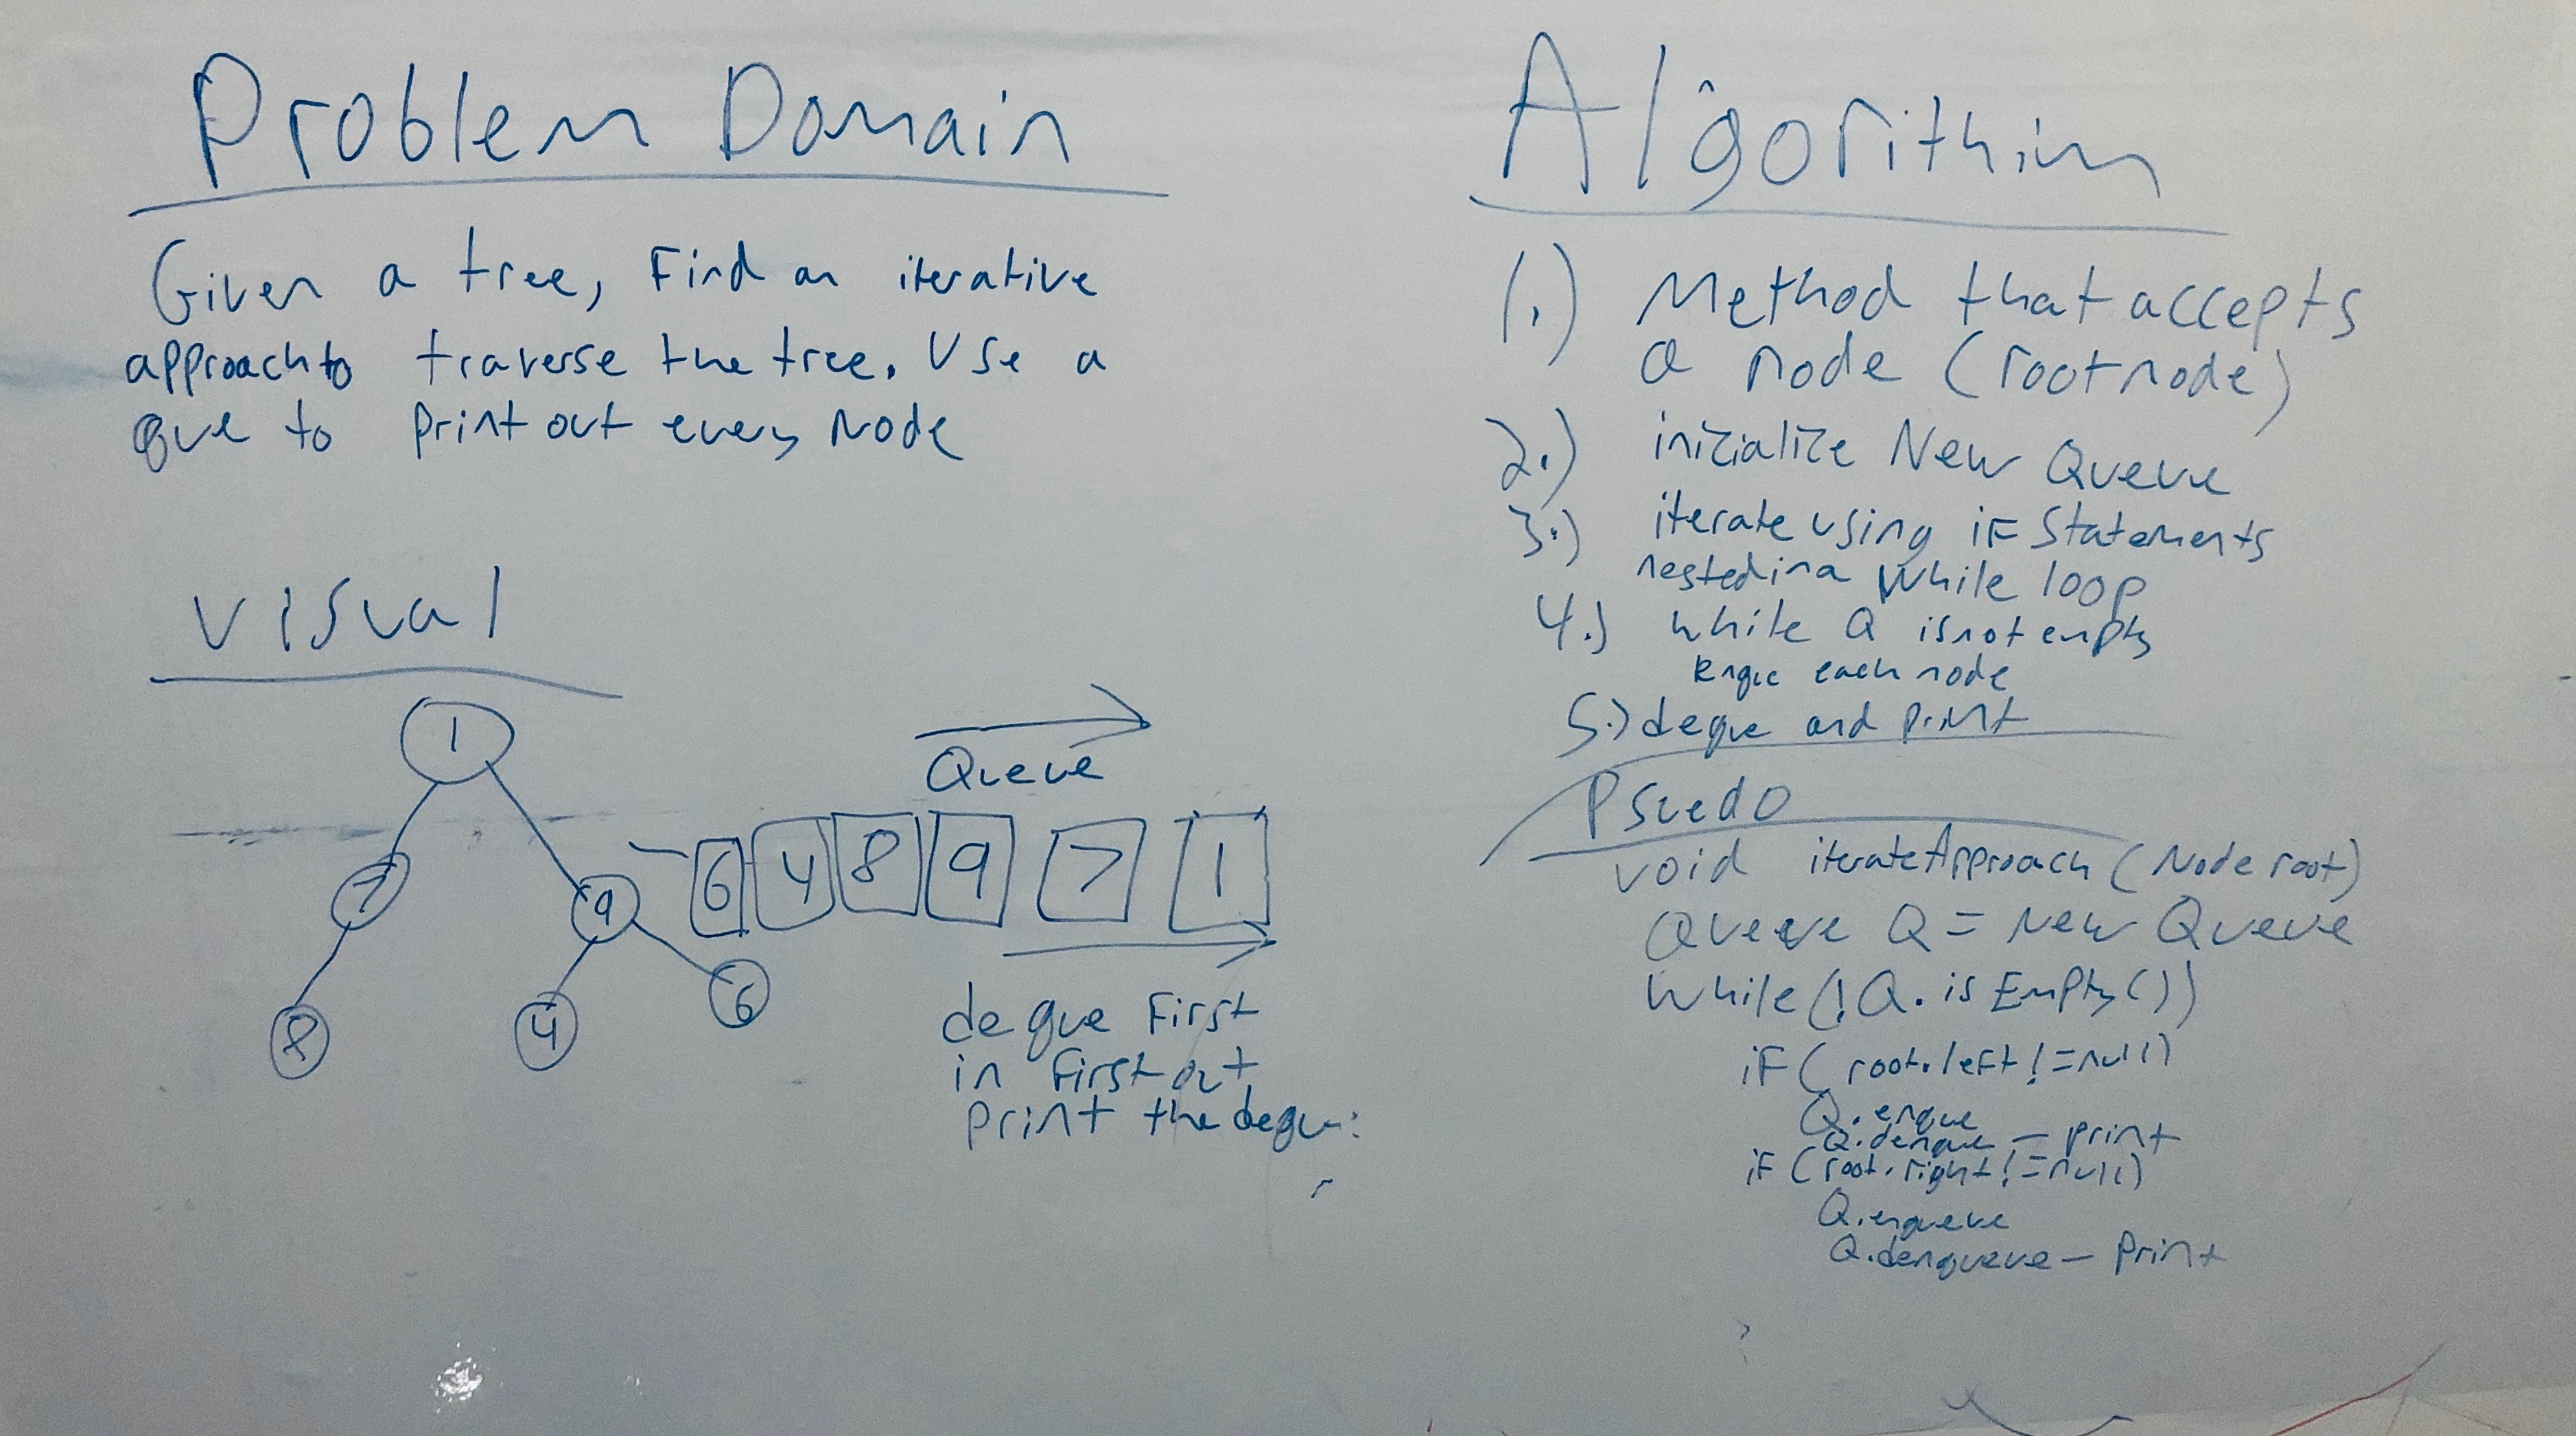 Problem Domain
Given a tree, Find an iterative
approach to traverse the tree. Use a
que to print out every Node
Visual
1
7
9
8
4
6
Queue
6 4 8 9 7 1
deque First
in first out
print the deque
Algorithim
1.) Method that accepts
a node (root node)
2.) inizialize New Queue
3.) iterate using if Statements
nested in a While loop
4.) while Q is not empty
Enque each node
5.) deque and print
Psuedo
void iterateApproach (Node root)
Queue Q = New Queue
While (!Q.isEmpty())
if (root.left != null)
Q.enque
Q.denque - print
if (root.right != null)
Q.enqueue
Q.denqueue - Print